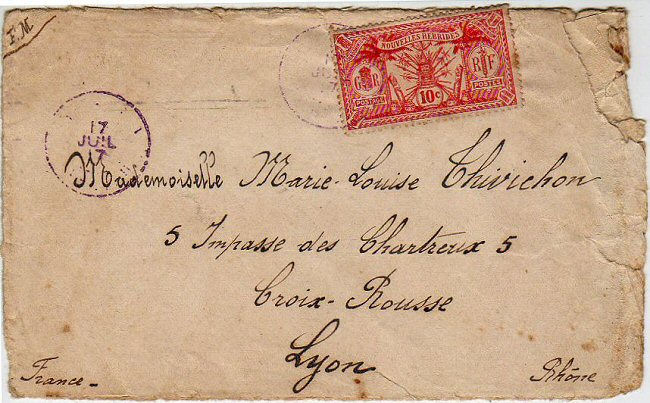 F.M
NOUVELLES HEBRIDES
G R
R F
POSTAGE
10c
POSTES
17
JUIL
Mademoiselle Marie-Louise Thivichon
5 Impasse des Chartreux 5
Croix-Rousse
Lyon
France
Rhône